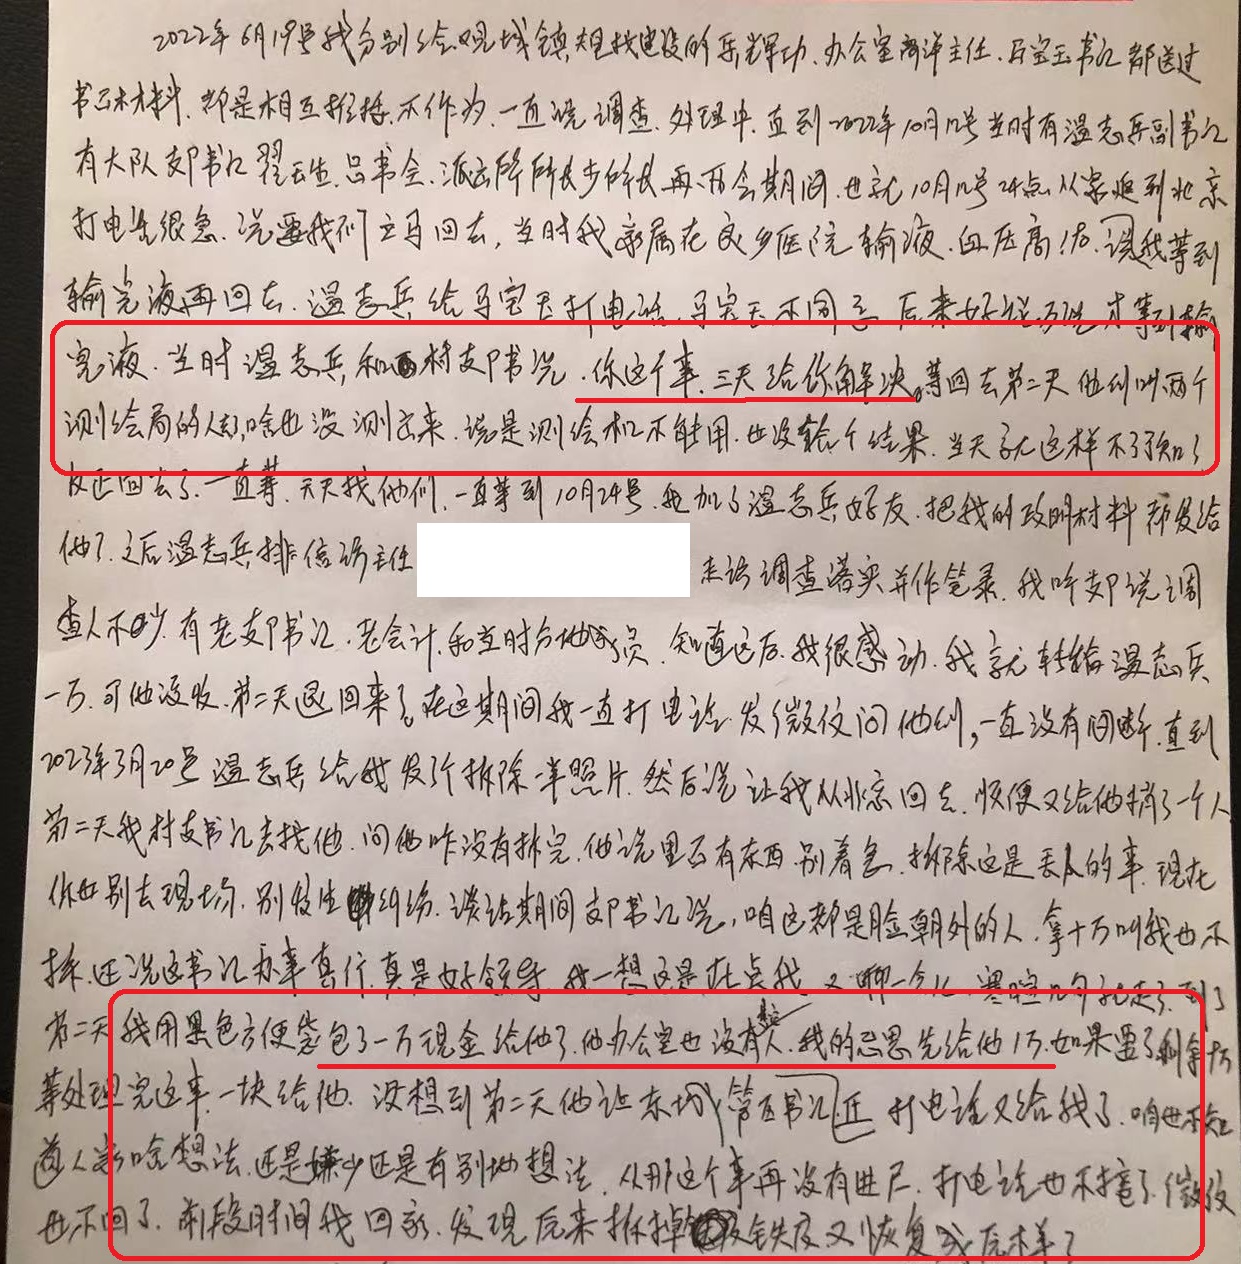 2022年6月19号我分别给观城镇规划建设的乐辉功、办公室高洋主任、马宝玉书记都送过
书面材料,都是相互推托,不作为,一直说调查,处理中,直到2022年10月12号当时有温志兵副书记
有大队支部书记翟玉生、吕书会、派出所所长步所长再两会期间,也就10月12号24点从家追到北京
打电话很急,说要我们立马回去,当时我亲属在良乡医院输液,血压高,说我等到
输完液再回去,温志兵给马宝玉打电话,马宝玉不同意,后来好说歹说才等到输
完液.当时温志兵和村支部书说,你这个事,三天给你解决。等回去第二天他们叫两个
测绘局的人去,啥也没测出来,说是测绘机不能用,也没给个结果,当天就这样不了了知了
反正回去了.一直等,天天找他们,一直等到10月24号,我加了温志兵好友,把我的证明材料都发给
他了.之后温志兵排信访主任 去访调查落实并作笔录,我听部说调
查人不少,有老支部书记,老会计和当时分地成员,知道这后,我很感动,我就转给温志兵
一万,可他没收,第二天退回来了。在这期间我一直打电话,发微信问他们,一直没有间断,直到
2023年3月20号温志兵给我发了个拆除一半照片,然后说让我从北京回去,顺便又给他捎了一个人
第二天我村支书记去找他,问他咋没有拆完,他说里面有东西,别着急,拆除这是丢人的事,现在
你也别去现场,别发生纠纷,谈话期间支部书记说,咱这都是脸朝外的人,拿十万叫我也不
拆,还说这书记办事真行,真是好领导,我一想这是在点我,又聊一会儿,寒暄几句就走了,到了
第二天我用黑色方便袋包了一万现金给他了,他办公室也没有人,我的意思先给他1万,如果要了剩拿十万
等处理完这事,一块给他,没想到第二天他让东城管区书记 打电话又给我了.咱也不知
道人家啥想法,还是嫌少还是有别地想法,从那这个事再没有进尺,打电话也不接了,微信
也不回了,前段时间我回家,发现后来拆掉铁皮又恢复成原样了